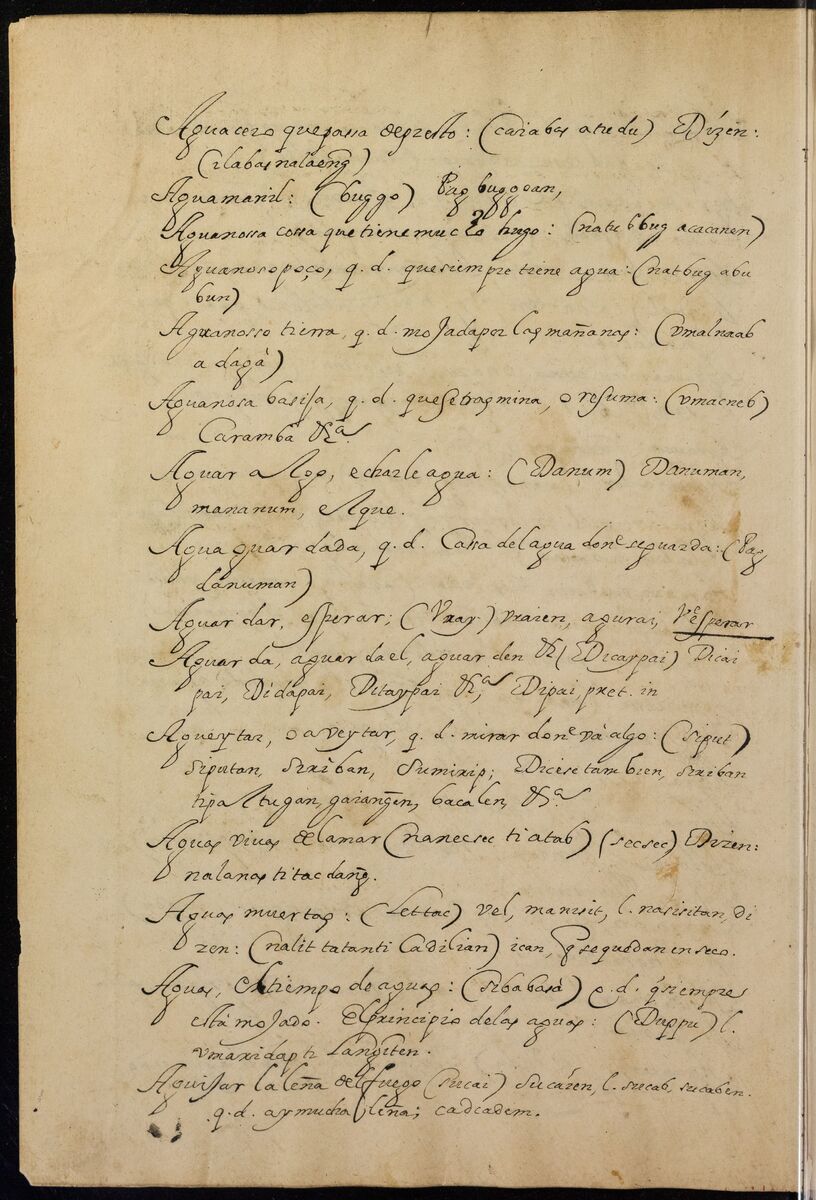 Aguacero que passa depresto: (carabas a tudu) Dizen:
(ilabas nalaeng̃)
Aguamanil: (buggo) Pag buggoan,
Aguanossa cossa que tiene mucho hugo: (natubbug a cacanen)
Aguanoso poço, q. d. que siempre tiene agua: (natbug a bu
bun)
Aguanosso tierra, q. d. mojada por las mañanas: (vmalnaab
a dagà)
Aguanosa basija, q. d. que se trasmina, o resuma: (vmacneb)
Caramba &ª.
Aguar algo, echarle agua: (Danum) Danuman,
mananum, el que.
Agua guardada, q. d. Cassa del agua donᵉ se guarda: (Pag
danuman)
Aguardar, esperar; (Vray) vraien, agurai, Vᵉ esperar
Aguarda, aguarda el, aguarden & (Dicaypai) Dicai
pai, Didapai, Ditaypai &ª, Dipai, pret. in
Agueytar, o aveytar, q. d. mirar donᵉ và algo: (siput)
siputan, siriban, sumirip; Dicese tambien, siriban
tipaltugan, gaiang̃en, bacalen, &ª
Aguas vivas de la mar (nanecsec ti atab) (secsec) Dizen:
nalanas titac dang̃.
Aguas muertas: (Lettac) vel, manisit, l. nasisitan, di
zen: (nalit tatanti Cadilian) ican, q̃ se quedan en seco.
Aguas, el tiempo de aguas: (sibabasà) q. d. q̃ siempre
està mojado. El principio de las aguas: (Duppu) l.
vmaridap ti Lang̃iten.
Aguijar la leña del fuego (sucai) sucáren, l. sucab, sucaben.
q. d. ay mucha leña; cadcadem.